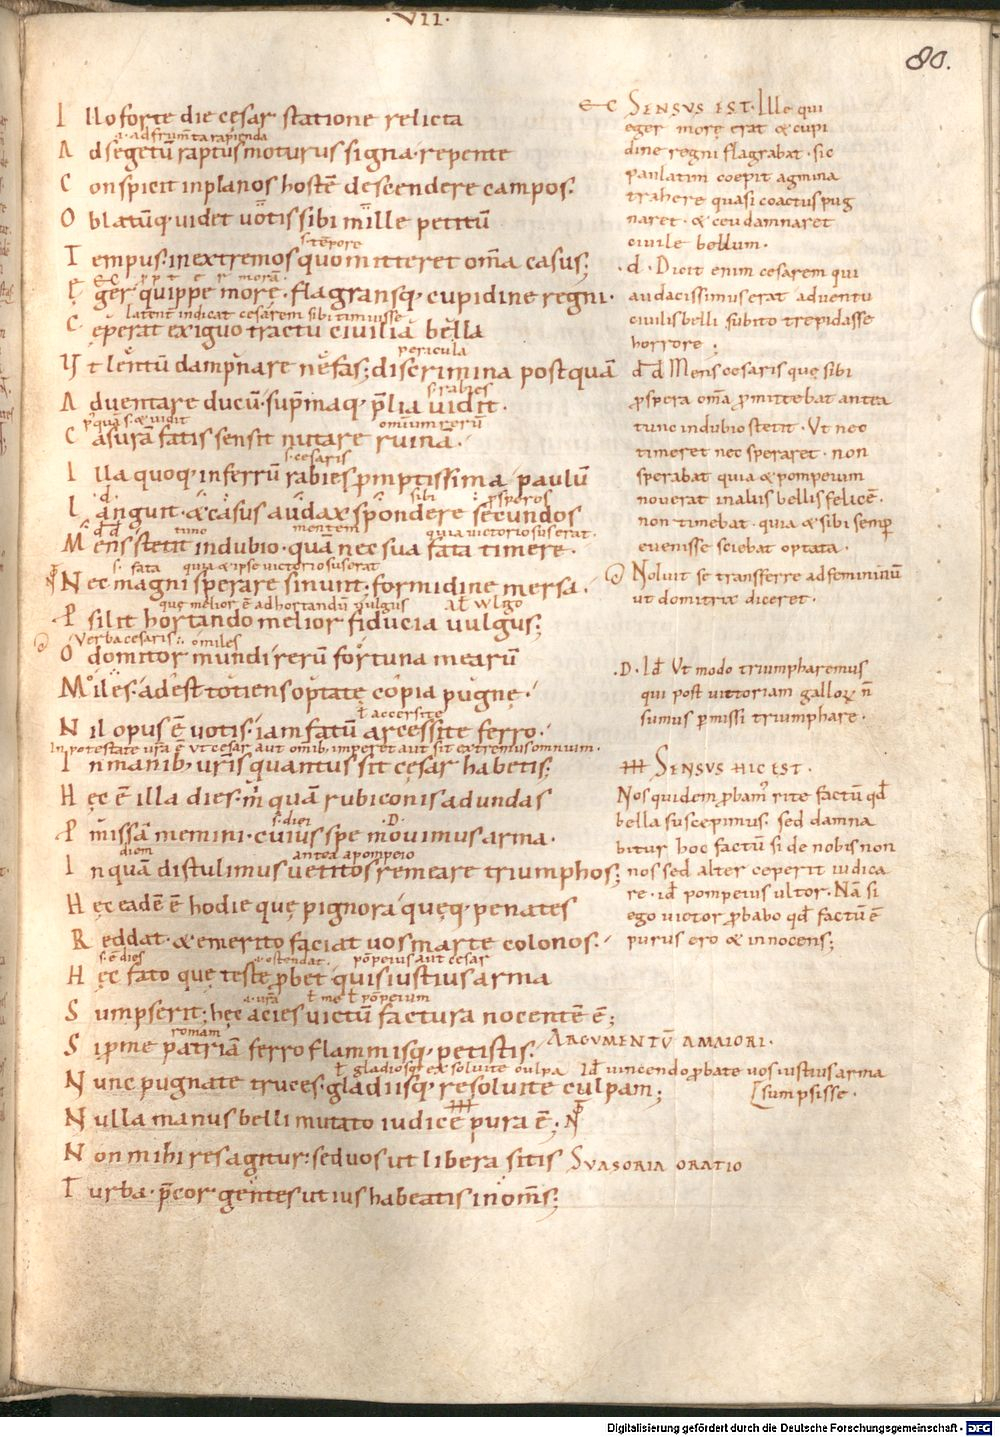 ·VII·
80.
I llo forte die cęsar statione relicta
.a. ad frum̄ta rapienda
A d segetū raptus moturus signa· repente
C onspicit in planos hostē descendere campos.
O blatūq· uidet uotis sibi mille petitū
s. tēpore
T empus· in extremos quo mitteret om̄a casus;
Ę ger quippe morę· flagransq· cupidine regni·
latent̄ indicat cesarem sibi timuisse
C ęperat exiguo tractu ciuilia bella
pericula
Ut lentū dampnare nefas; discrimina postquā
s. rabies
A duentare ducū· sup̄maq· p̄lia uidit·
omniū rerū
C asurā fatis sensit nutare ruinā·
s. cesaris
I lla quoq· in ferrū rabies promptissima· paulū
·d· sibi ꝓsperos
L anguit· & casus audax spondere secundos
d d tunc mentem quia uictorio sus erat·
M ens stetit in dubio· quā nec sua fata timere·
s. fata quia & ipse uictorio sus erat
N ec magni sperare sinunt· formidine mersa·
quę melior ē ad hortandū uulgus al̄ wlgo
P silit hortando melior fiducia uulgus;
Verba cesaris: o miles
O domitor mundi rerū fortuna mearū
M iles· adest totiens optatę copia pugnę·
l̄ accersite
N il opus ē uotis· iam fatū arcessite ferro·
In potestate ur̄a ē ut cesar aut omib· imperet aut sit extremus omnium·
I n manib· ur̄is quantus sit cęsar habetis;
H ęc ē illa dies· m̄ quā rubiconis ad undas
s. diei ·D·
P missā memini· cuius spe mouimus arma·
diem antea a pompeio
I n quā distulimus uetitos remeare triumphos;
H ęc eadē ē hodie quę pignora quęq· penates
R eddat· & emerito faciat uos marte colonos·
s. ē dies .a. ostendat· pōpeius aut cesar
H ęc fato quę teste ꝓbet quis iustius arma
.a. ur̄a l̄ me l̄ pōpeium
S umpserit; hęc acies uictū factura nocentē ē;
romam
S i p̄ me patriā ferro flammisq· petistis·
ARGVMENTŪ A MAIORI·
l̄ gladiosq· exsoluite culpa Id̄ uincendo ꝓbate uos iustius arma
N unc pugnate truces· gladiisq· resoluite culpam;
sumpsisse·
N ulla manus belli mutato iudice pura ē·
N on mihi res agitur: sed uos ut libera sitis
SVASORIA ORATIO
T urba· p̄cor gentes ut ius habeatis in om̄s;
SENSVS EST· Ille qui
eger morę erat & cupi
dine regni flagrabat· sic
paulatim coepit agmina
trahere quasi coactus pug
naret· & ceu damnaret
ciuile bellum·
·d· Dicit enim cesarem qui
audacissimus erat aduentu
ciuilis belli subito trepidasse
horrore;
d d Mens cesaris quę sibi
ꝓspera om̄a ꝓmittebat antea
tunc in dubio stetit· Ut nec
timeret nec speraret· non
sperabat quia & pompeium
nouerat in aliis bellis felicē·
non timebat· quia & sibi semꝑ
euenisse sciebat optata·
Noluit se transferre ad femininū
ut domitrix diceret·
·D· Id̄ Ut modo triumpharemus
qui post uictoriam galloꝝ n̄
sumus ꝑmissi triumphare·
SENSVS HIC EST·
Nos quidem ꝓbam̄ rite factū qd̄
bella suscepimus· sed damna
bitur hoc factū si de nobis non
nos sed alter ceperit iudica
re· id̄ pompeius ultor· Nā si
ego uictor ꝓbabo qd̄ factū ē
purus ero & innocens;
Digitalisierung gefördert durch die Deutsche Forschungsgemeinschaft · DFG